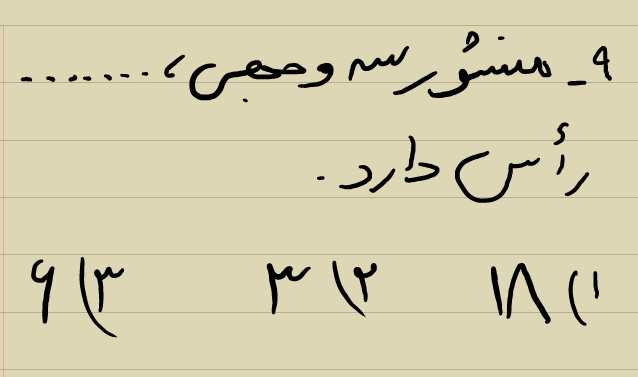 ۹- منشور سه وجهی، .......
رأس دارد.
۱) ۱۸ ۲) ۳ ۳) ۶